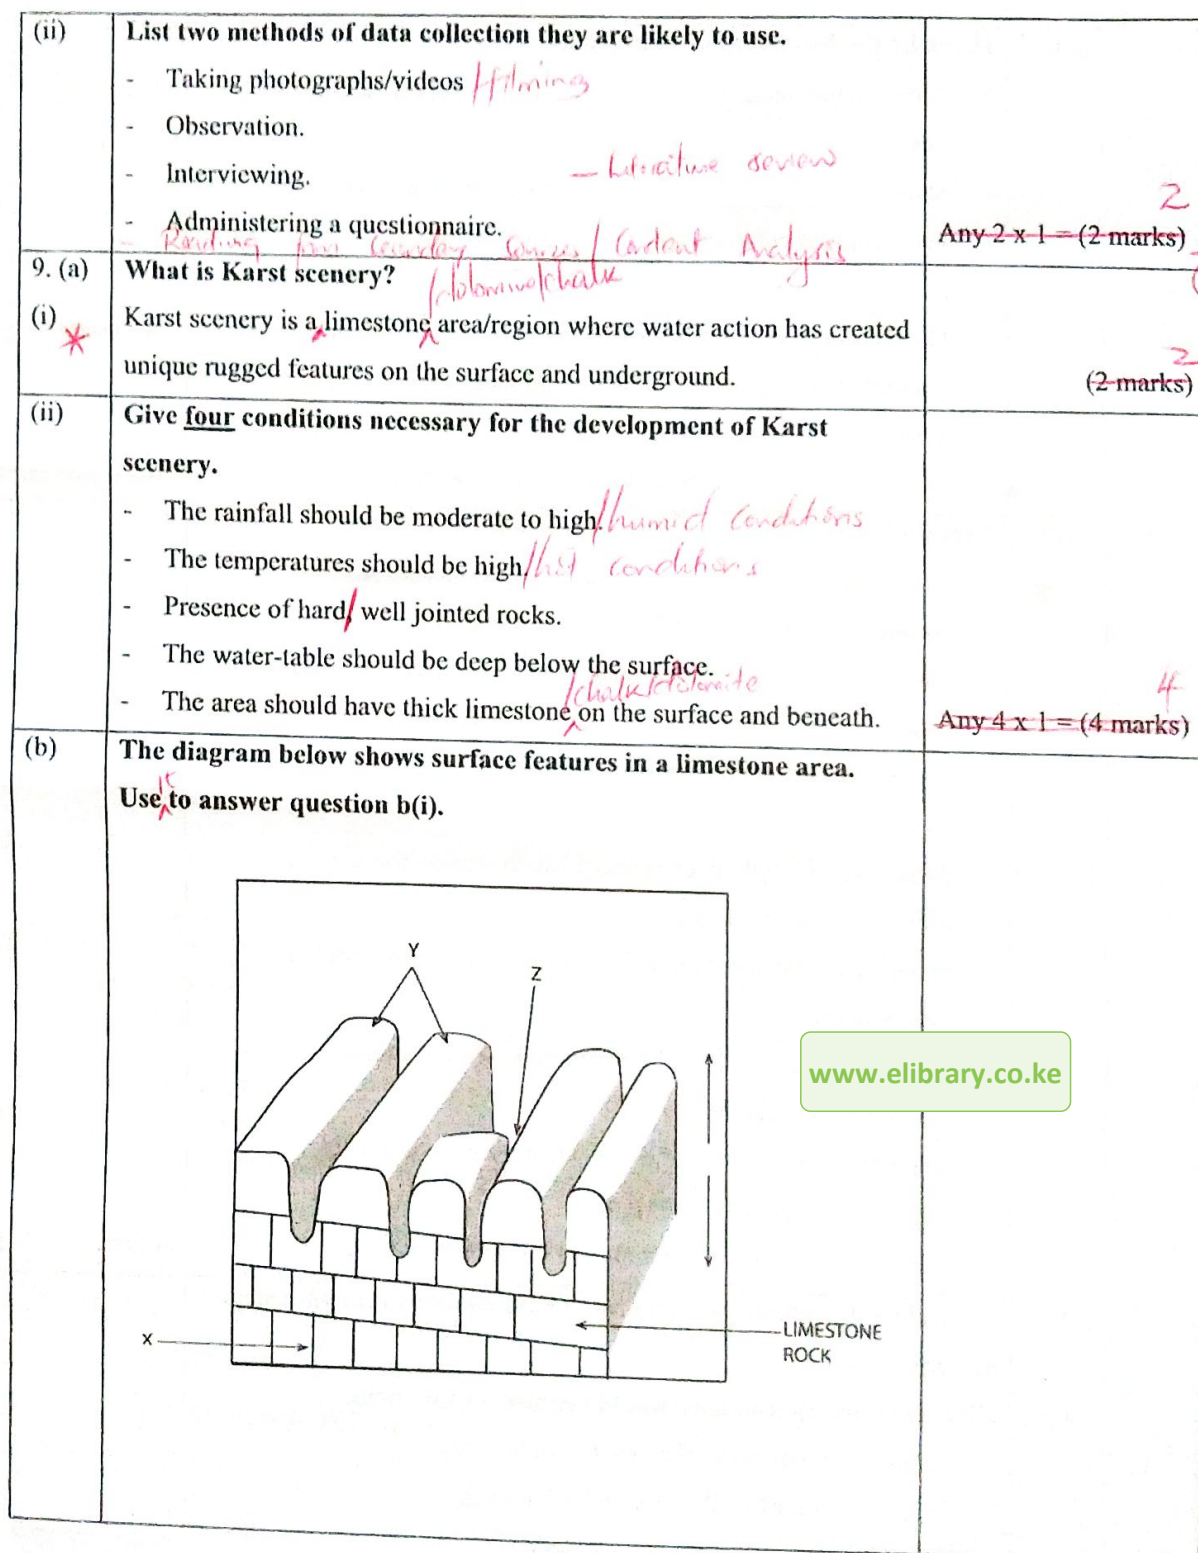 (ii) List two methods of data collection they are likely to use.
- Taking photographs/videos /filming
- Observation.
- Interviewing. — Literature review
- Administering a questionnaire. 2
Any 2 x 1 = (2 marks)
- Reading from Secondary Sources/ Content Analysis
9. (a) What is Karst scenery?
/dolomite/chalk
(i) * Karst scenery is a limestone area/region where water action has created
unique rugged features on the surface and underground. 2
(2 marks)
(ii) Give four conditions necessary for the development of Karst
scenery.
- The rainfall should be moderate to high. /humid conditions
- The temperatures should be high. /hot conditions
- Presence of hard/ well jointed rocks.
- The water-table should be deep below the surface.
/chalk/dolomite
- The area should have thick limestone on the surface and beneath. 4
Any 4 x 1 = (4 marks)
(b) The diagram below shows surface features in a limestone area.
it
Use to answer question b(i).
Y
Z
www.elibrary.co.ke
X
LIMESTONE
ROCK